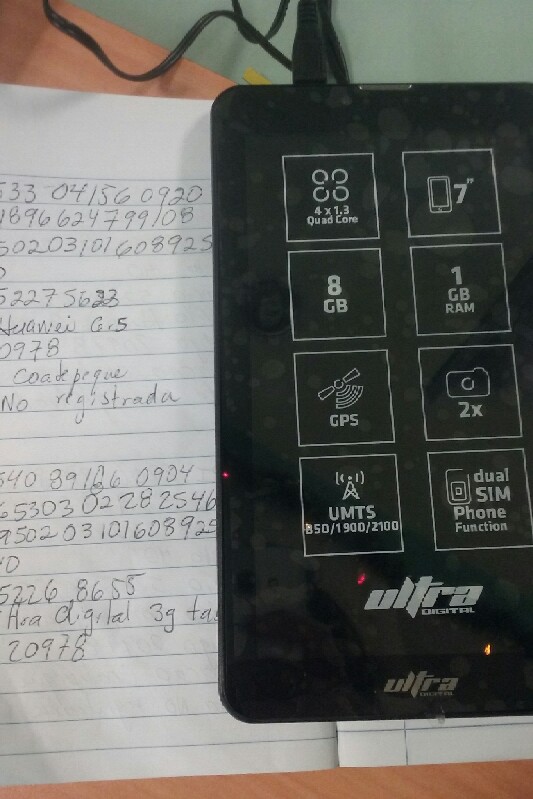 533 04156 0920
1896624799108
50203101608925
0
52275623
Huawei G.5
0978
Coatepeque
No registrada
540 89126 0904
65303 02282546
950203101608925
0
5226 8655
tra digital 3g ta
20978
4 x 1.3
Quad Core
7"
8
GB
1
GB
RAM
GPS
2x
UMTS
850/1900/2100
dual
SIM
Phone
Function
ultra
DIGITAL
ultra
DIGITAL